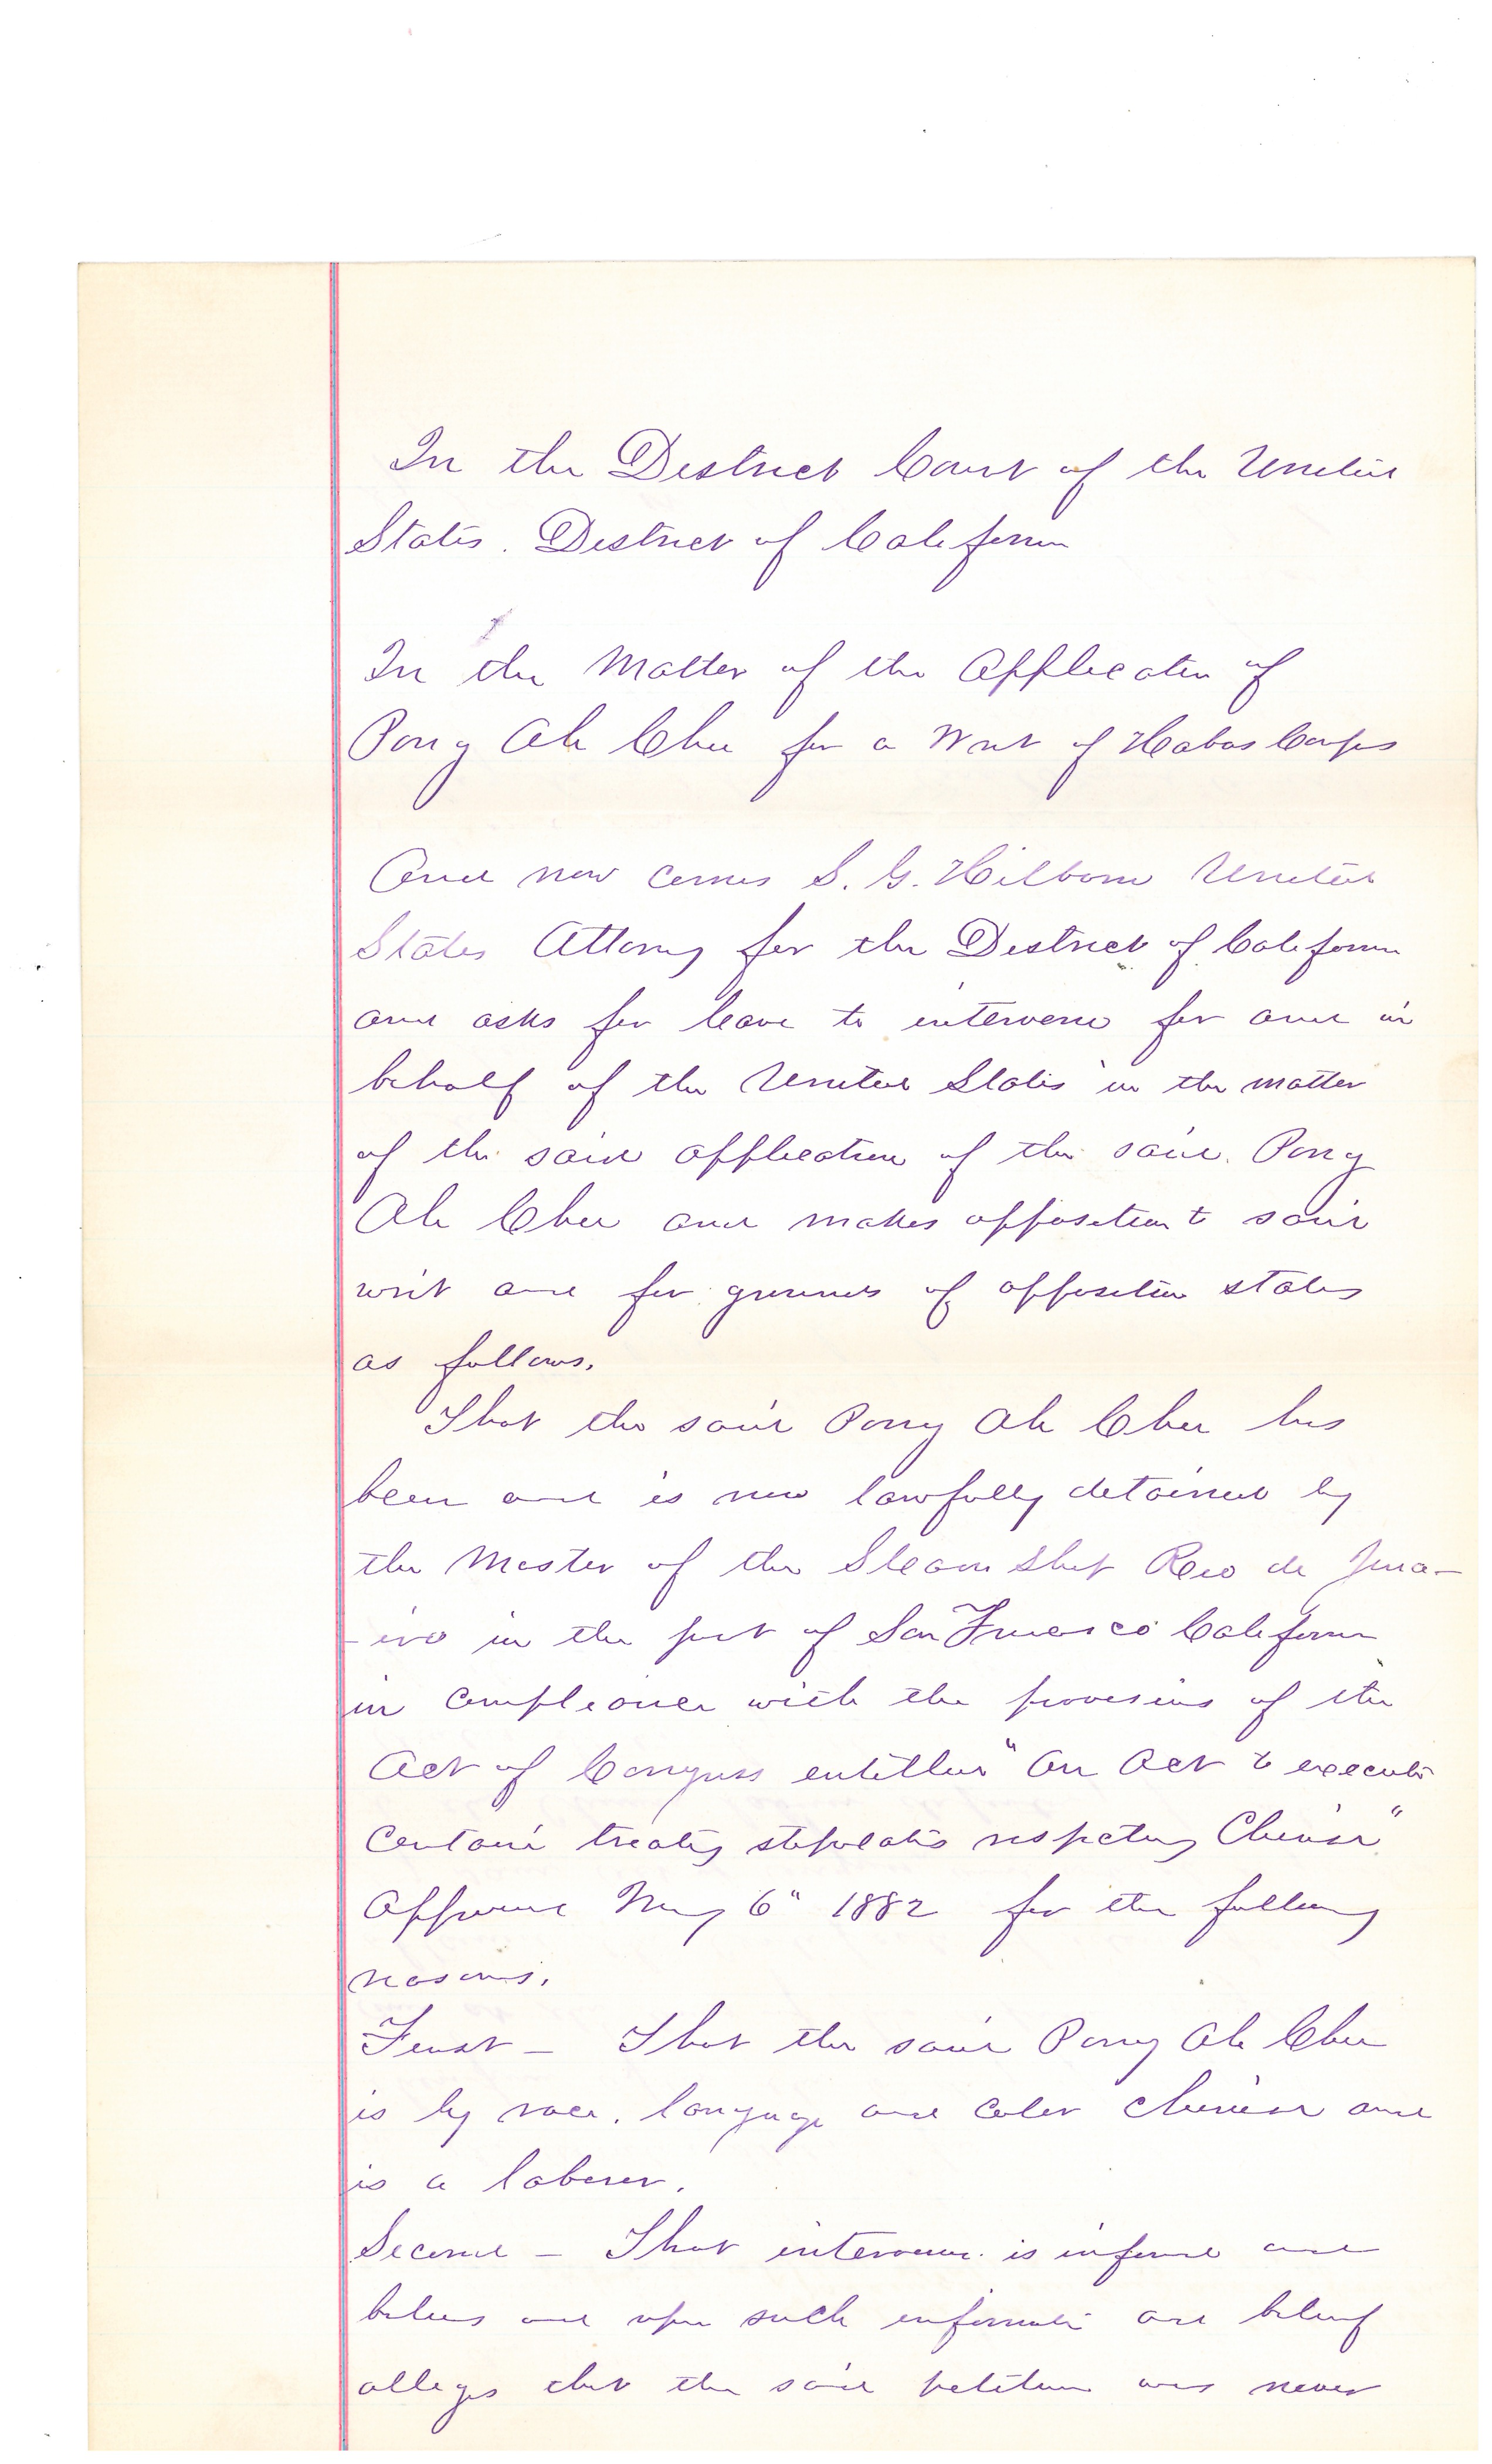 In the District Court of the United
States. District of California
In the Matter of the Application of
Pong Ah Chee for a Writ of Habeas Corpus
And now comes S. G. Hilborn United
States Attorney for the District of California
and asks for leave to intervene for and in
behalf of the United States in the matter
of the said application of the said. Pong
Ah Chee and makes opposition to said
writ and for grounds of opposition states
as follows.
That the said Pong Ah Chee has
been and is now lawfully detained by
the Master of the Steam Ship Rio de Jena-
-iro in the port of San Francisco California
in compliance with the provisions of the
Act of Congress entitled "An Act to execute
certain treaty stipulations respecting Chinese"
Approved May 6" 1882 for the following
reasons.
First - That the said Pong Ah Chee
is by race, language and color Chinese and
is a laborer.
Second - That intervenor is informed and
believes and upon such information and belief
alleges that the said petitioner was never